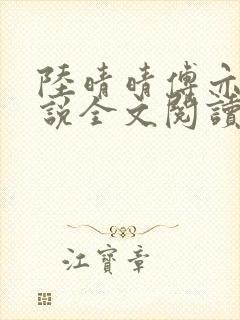 陸晴晴傅亦
說全文閱讀
江寶章